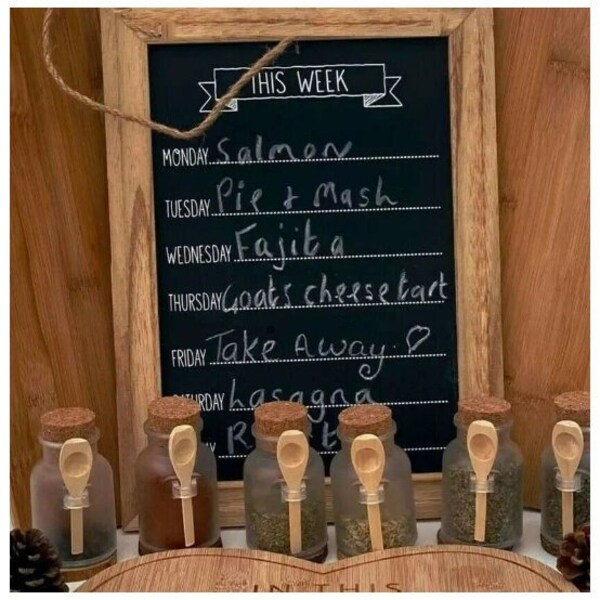 THIS WEEK
MONDAY Salmon
TUESDAY Pie & Mash
WEDNESDAY Fajita
THURSDAY Goats cheese tart
FRIDAY Take Away ♡
Lasagna
IN THIS